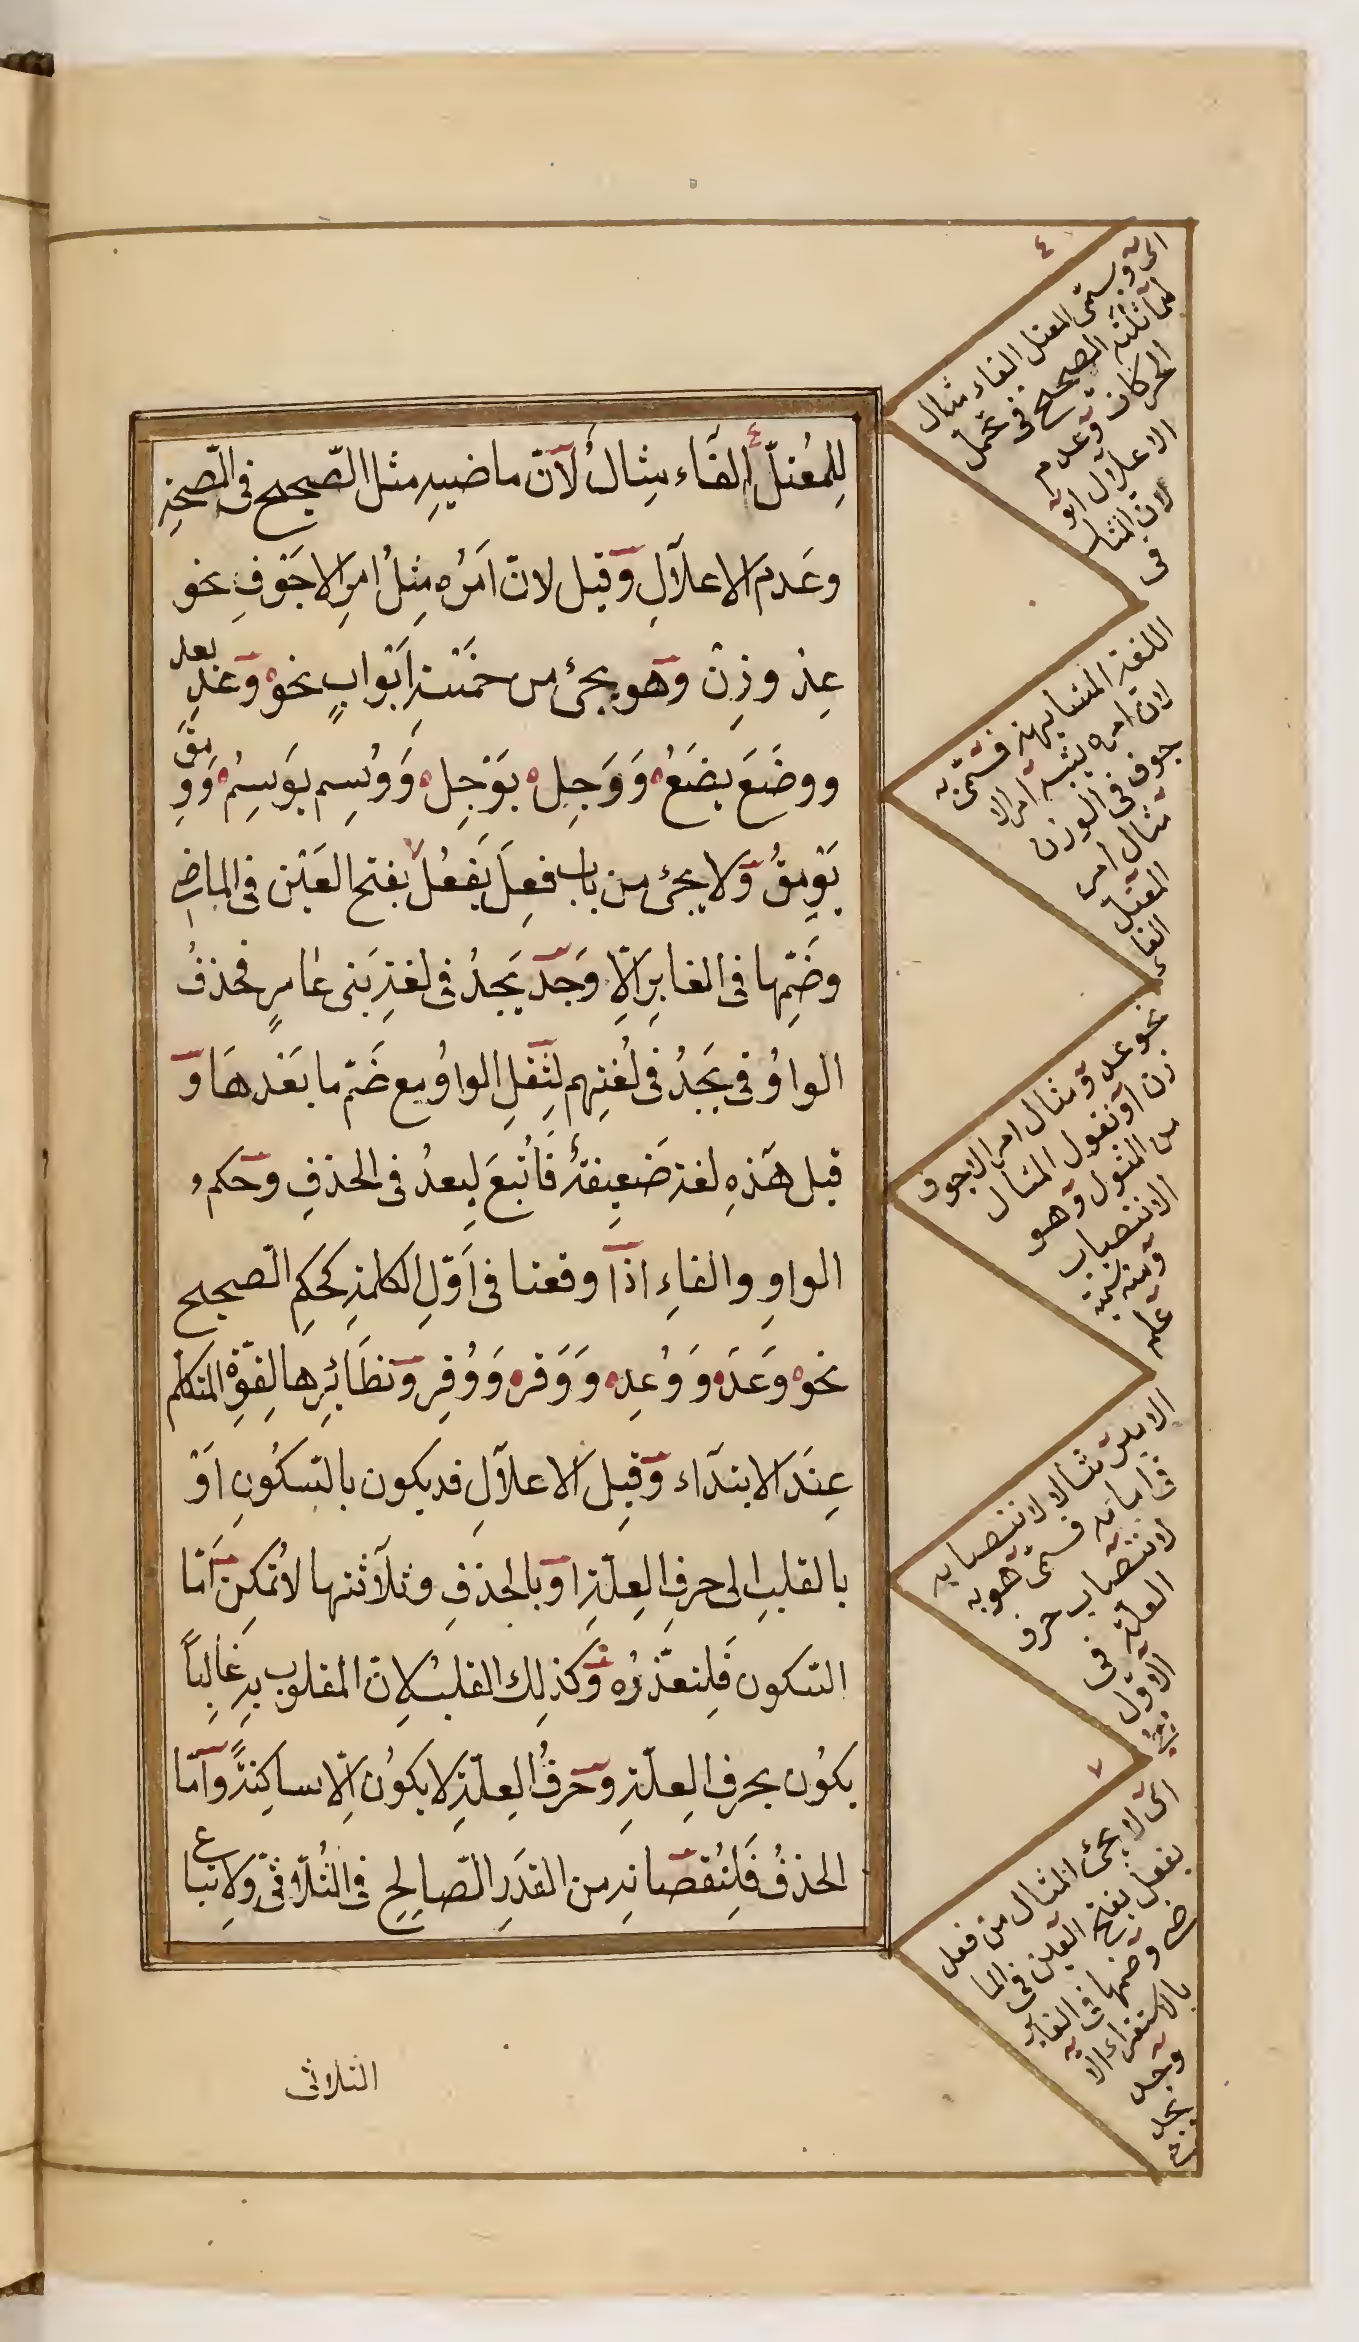 للمُعتلّ الفآء مِثالٌ لآنّ ماضييهِ مثل الصّحيح فى الصّحةِ
وعَدم الاعلآلِ وَقيل لانّ اَمرُه مِثلُ امرِ الاجَوفِ نحو
عِدْ وزِنْ وَهو يجئُ من خمَسَةِ اَبْوابٍ نحو وَعَدَ يعد
ووضَعَ يضَعُ وَوَجِل يوْجِل وَوُسِم يوَسِمُ وَوَمِقَ
يَوْمِقُ وَلا يجئ من باب فعِلَ يَفعُل بفتح العَيْن فى الماضِ
وضَمِّها فى الغابِرِ اِلاّ وَجَدَ يَجدُ فى لغةِ بَنى عامرٍ فحذفُ
الواوُ فى يَجَدُ فى لُغتِهم لِثِقَلِ الواوُ مع ضَمّ ما بَعْدهَا وَ
قيل هَذهِ لغة ضَعِيفةٌ فَاُتبعَ لِيعدُ فى الحذفِ وَحكم
الواوِ والفاءِ اذآ وقعنا فى اَوّلِ الكلمةِ كحُكِم الصّحيح
نحو وَعَدَ وَوُعِد وَوَقر وَوُقِر وَنظَائِرِها لِقوّةِ المتكلم
عِنَد الابتدآء وَقيِل الاعلآلِ قد يكون بالسّكُونِ اَوْ
بالقلبِ الى حرفِ العِلّةِ اوَ بالحذفِ وثلآثتها لا تُمكِن اَمّا
السّكون فَلِتعذّرُه وَكذلِك القلبُ لاِنّ المقلوب بِهِ غالِباً
يكُون بحرفِ العِلّةِ وحَرفُ العِلّةِ لا يكوُن اِلاّ ساكِنةً وَامّا
الحذفُ فَلِنُقصَانِهِ من القدَرِ الصّالِحِ فى الثُلآثىّ وَلاِتباع
الثلاثى
٤
اى وَيسمّى المعتل الفاء مثال
لمماثلته الصحيح فى تحمّل
الحركات وَعدم
الاعلال اوَ
لان المثال
فى
اللغة المتشابهة فسمّى به
لان امره يشبه امر الا
جوف فى الوزن
مثال امر
المعتل
الفاء
نحو عد وَمثال امر الاجوف
زن اوَ نقول المثال
من المثول وَهو
الانتصاب
وَمنه
عليه
لانتصاب حرف
العلة فى
الاوّل
٧
اى لا يجئ المثال من فعل
يفعل بفتح العَين فى الما
ضى وَضمّها فى الغابر
بالاستقراء الا
وَجد
يجد